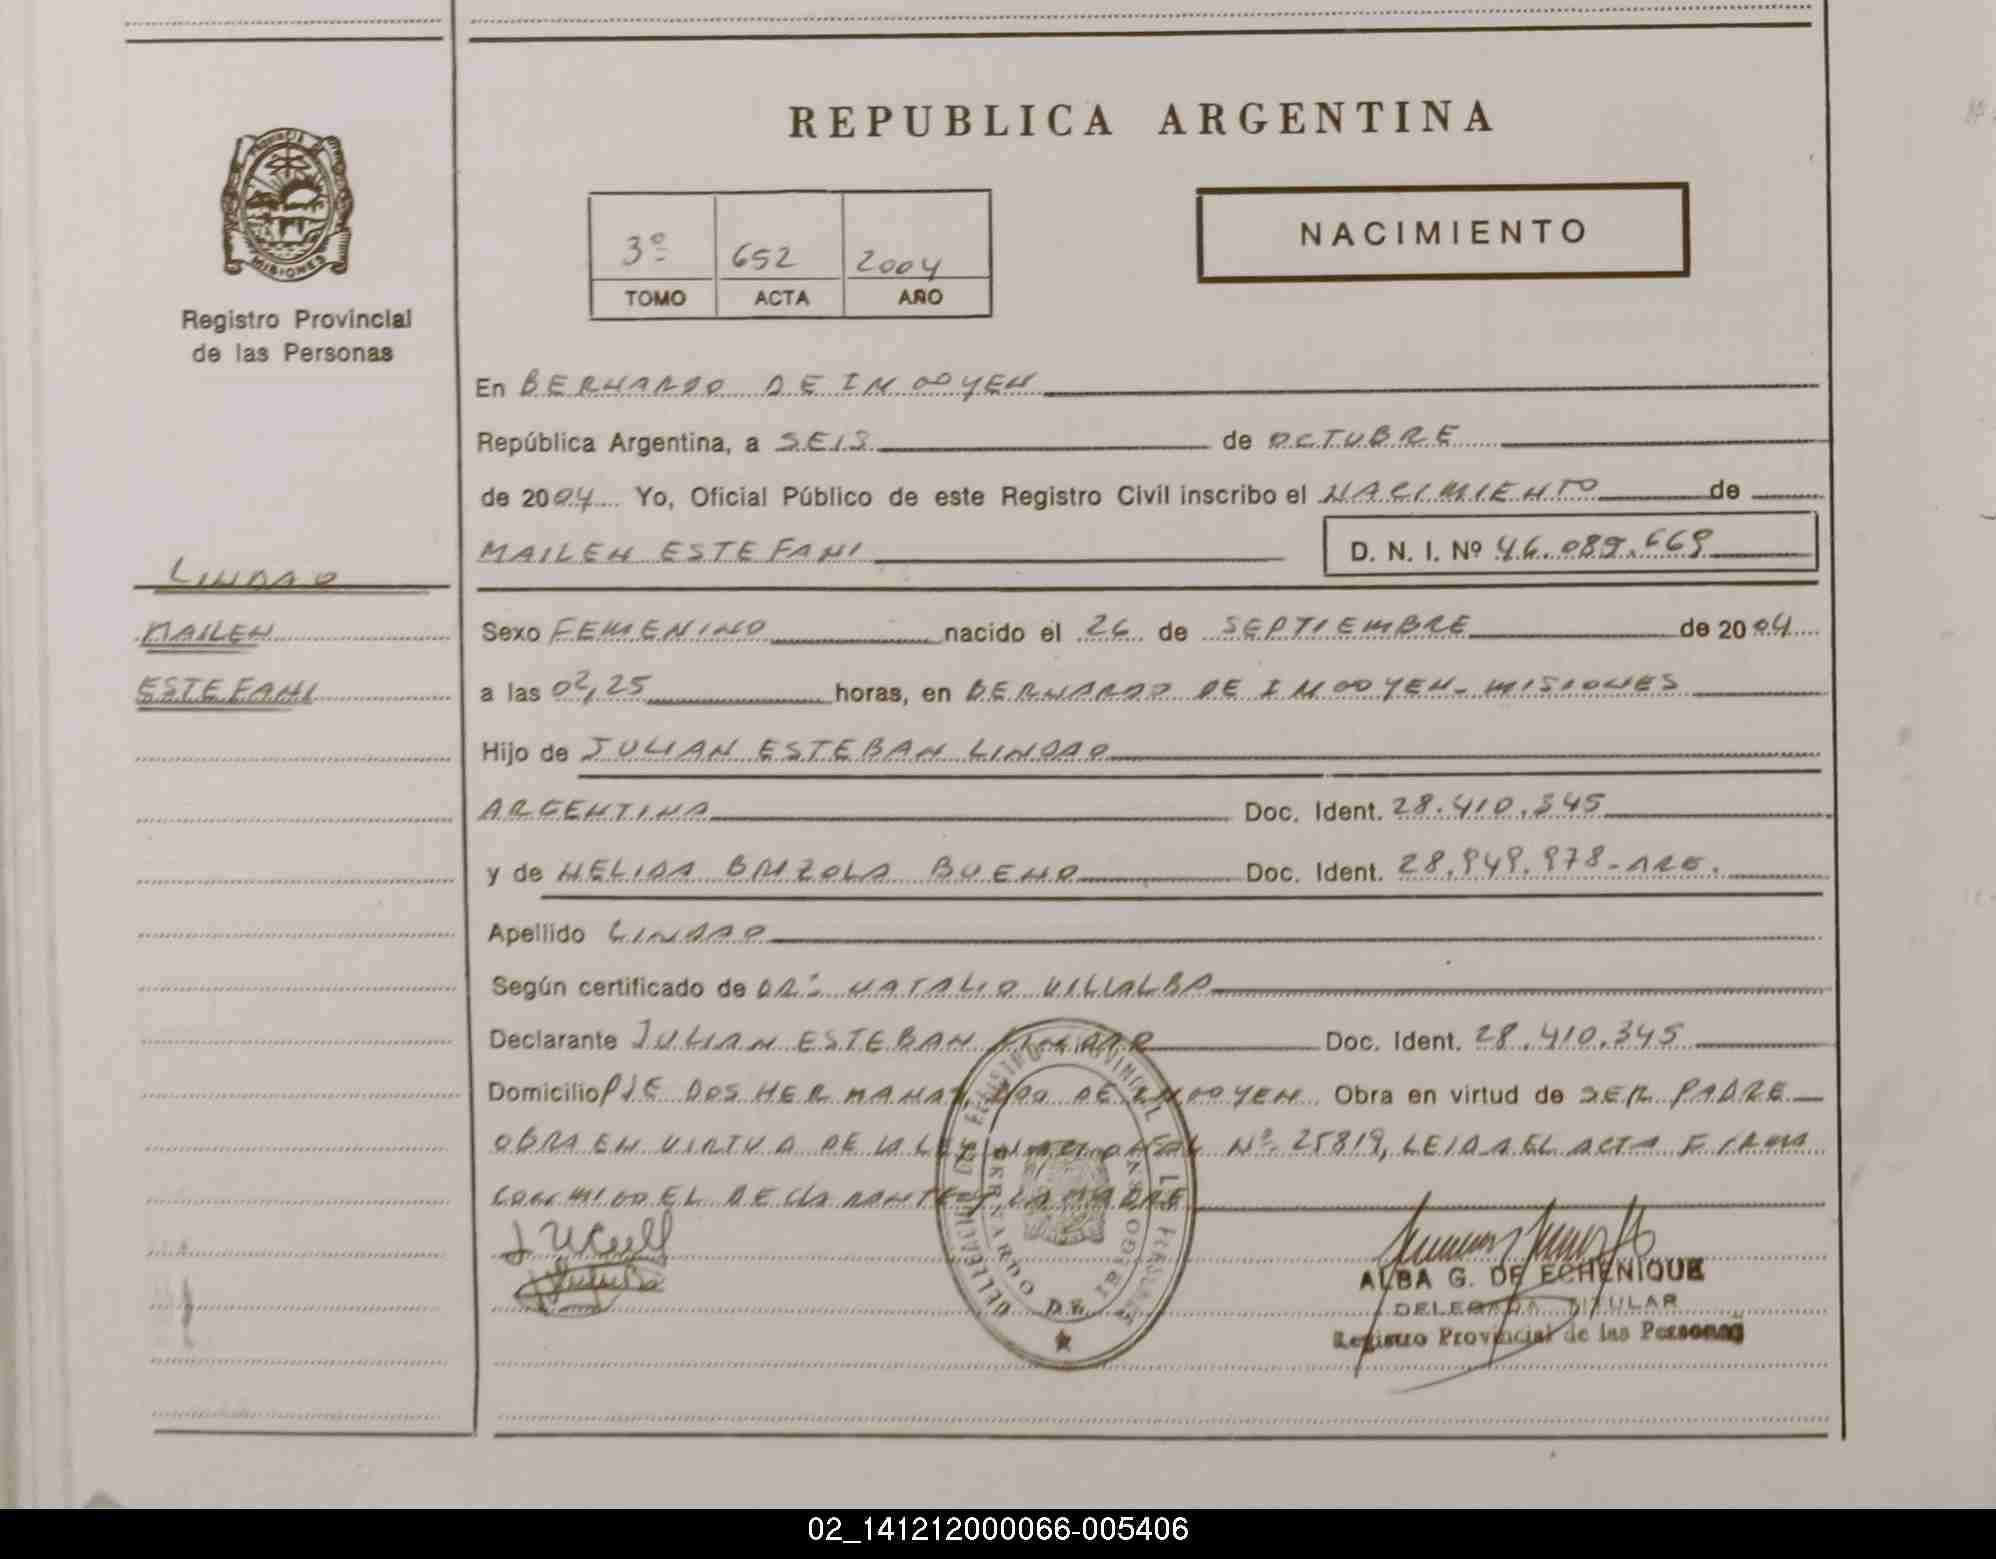 REPUBLICA ARGENTINA
PROVINCIA DE
MISIONES
Registro Provincial
de las Personas
3º 652 2004
TOMO ACTA AÑO
NACIMIENTO
En BERNARDO DE IRIGOYEN
República Argentina, a SEIS de OCTUBRE
de 2004 Yo, Oficial Público de este Registro Civil inscribo el NACIMIENTO de
MAILEN ESTEFANI D. N. I. Nº 46.089.669
LINDAO
MAILEN
ESTEFANI
Sexo FEMENINO nacido el 26 de SEPTIEMBRE de 2004
a las 02,25 horas, en BERNARDO DE IRIGOYEN - MISIONES
Hijo de JULIAN ESTEBAN LINDAO
ARGENTINA Doc. Ident. 28.410.345
y de NELIDA BRIZOLA BUENO Doc. Ident. 28.949.978 - ARG.
Apellido LINDAO
Según certificado de DR: NATALIO VILLALBA
Declarante JULIAN ESTEBAN LINDAO Doc. Ident. 28.410.345
Domicilio PJE DOS HERMANAS, BDO DE IRIGOYEN Obra en virtud de SER PADRE
OBRA EN VIRTUD DE LA LEY NACIONAL Nº 25819, LEIDA EL ACTA FIRMA
CONMIGO EL DECLARANTE Y LA MADRE
DELEGACION DEL REGISTRO PROVINCIAL DE LAS PERSONAS
BERNARDO DE IRIGOYEN
ALBA G. DE ECHENIQUE
DELEGADA TITULAR
Registro Provincial de las Personas
02_141212000066-005406